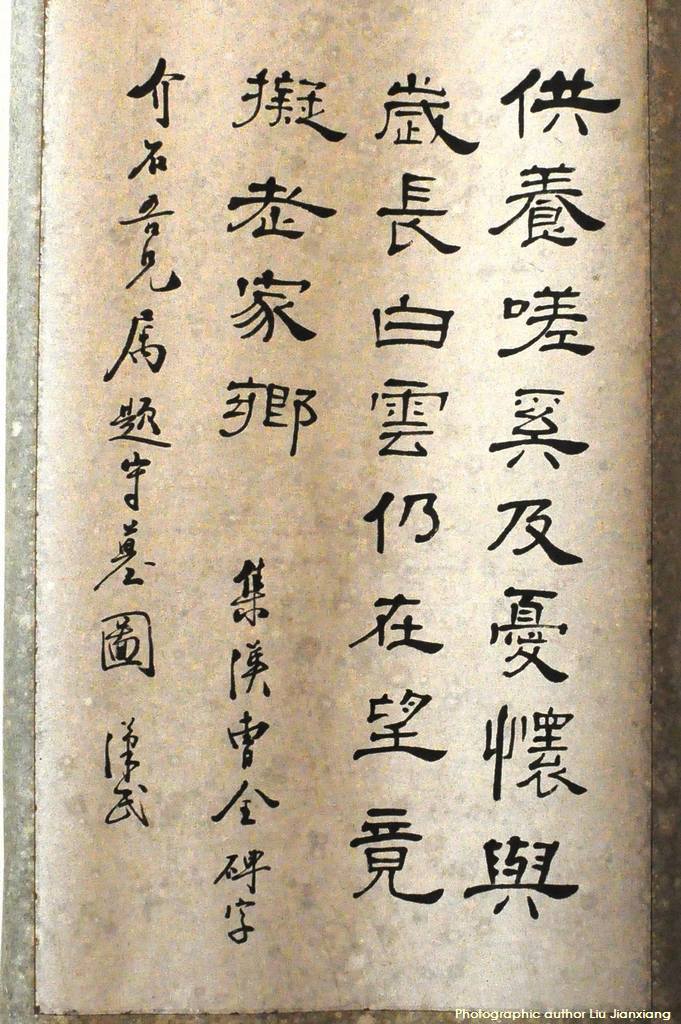 供養嗟奚及憂懷與
歲長白雲仍在望竟
擬老家鄉
集漢曹全碑字
介石吾兄属題守墓圖
漢民
Photographic author Liu Jianxiang